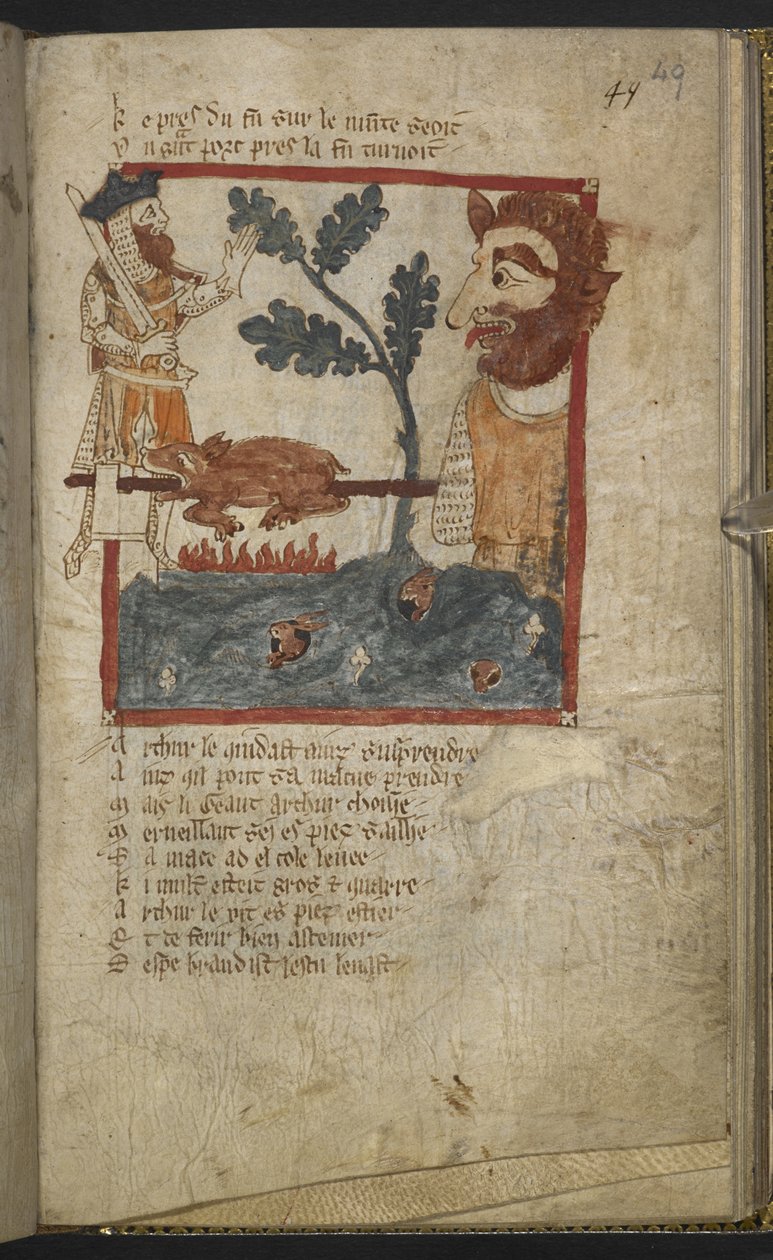 49
44
K e pres du fu sur le munte seoit
U n gant porc pres la fu turnoit
A rthur le quidast ainz susprendre
A inz qil pout sa macue prendre
M ais li Geant Arthur choisie
M erueillant sei es piez saillie
S a mace ad el cole leuee
K i mult esteit gros & quarre
A rthur le vit es piez ester
E t de ferir bien
D espe brandist lescu leuast